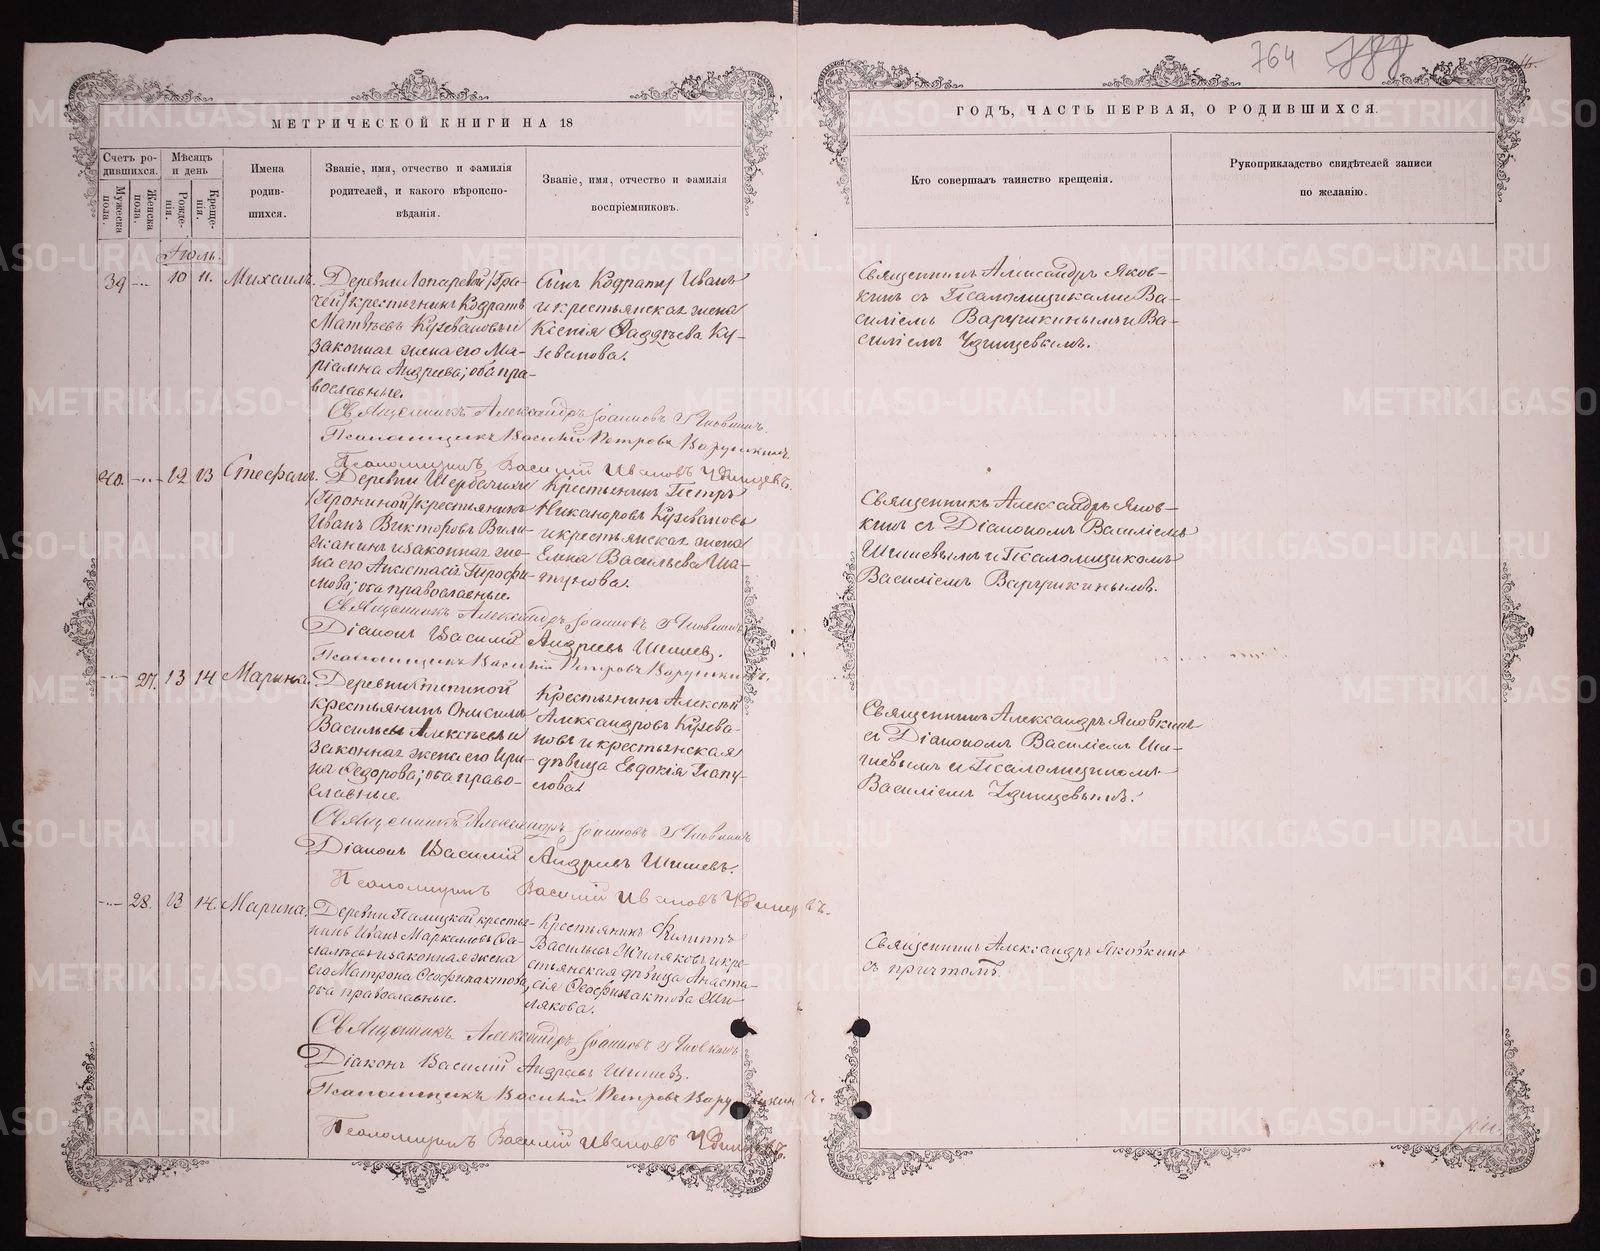 764
МЕТРИЧЕСКОЙ КНИГИ НА 18
Счетъ родившихся.
Мужеска пола.
Женска пола.
Мѣсяцъ и день
Рожденія.
Крещенія.
Имена родившихся.
Званіе, имя, отчество и фамилія
родителей, и какого вѣроиспо-
вѣданія.
Званіе, имя, отчество и фамилія
воспріемниковъ.
ГОДЪ, ЧАСТЬ ПЕРВАЯ, О РОДИВШИХСЯ.
Кто совершалъ таинство крещенія.
Рукоприкладство свидѣтелей записи
по желанію.
Іюль.
39 10 11. Михаилъ.
крестьянинъ Кодратъ
Матвѣевъ Кузевановъ и
законная жена его Ма-
ріамна Андреева; оба пра-
вославные.
Сынъ Кодрата Иванъ
и крестьянская жена
Ксенія Фаддѣева Ку-
зеванова.
Священникъ Александръ Яков-
кинъ съ Псаломщиками Ва-
силіемъ Варушкинымъ и Ва-
силіемъ Удинцевымъ.
Священникъ Александръ Іоанновъ Яковкинъ.
Псаломщикъ Василій Петровъ Варушкинъ.
Псаломщикъ Василій Ивановъ Удинцевъ.
40. 12 13 Стефанъ.
крестьянинъ
Иванъ Викторовъ
и законная же-
на его Анастасія Трофи-
мова; оба православные.
Крестьянинъ Петръ
Никаноровъ Кузевановъ
и крестьянская жена
Елена Васильева
Священникъ Александръ Яков-
кинъ съ Діакономъ Василіемъ
Шишевымъ и Псаломщикомъ
Василіемъ Варушкинымъ.
Священникъ Александръ Іоанновъ Яковкинъ
Діаконъ Василій Андреевъ Шишевъ.
Псаломщикъ Василій Петровъ Варушкинъ.
27. 13 14 Марина.
Деревни
крестьянинъ Онисимъ
Васильевъ Алексѣевъ и
законная жена его Ири-
на Федорова; оба право-
славные.
Крестьянинъ Алексѣй
Александровъ Кузева-
новъ и крестьянская
дѣвица Евдокія Папу-
лова.
Священникъ Александръ Яковкинъ
съ Діакономъ Василіемъ Ши-
шевымъ и Псаломщикомъ
Василіемъ Удинцевымъ.
Священникъ Александръ Іоанновъ Яковкинъ
Діаконъ Василій Андреевъ Шишевъ.
Псаломщикъ Василій Ивановъ Удинцевъ.
28. 13 14. Марина.
Деревни кресть-
янинъ Иванъ Маркелловъ
и законная жена
его Матрона Феофилактова,
оба православные.
Крестьянинъ Филиппъ
Васильевъ и кре-
стьянская дѣвица Анаста-
сія Феофилактова
Священникъ Александръ Яковкинъ
съ причтомъ.
Священникъ Александръ Іоанновъ Яковкинъ
Діаконъ Василій Андреевъ Шишевъ.
Псаломщикъ Василій Петровъ Варушкинъ.
Псаломщикъ Василій Ивановъ Удинцевъ.
METRIKI.GASO-URAL.RU